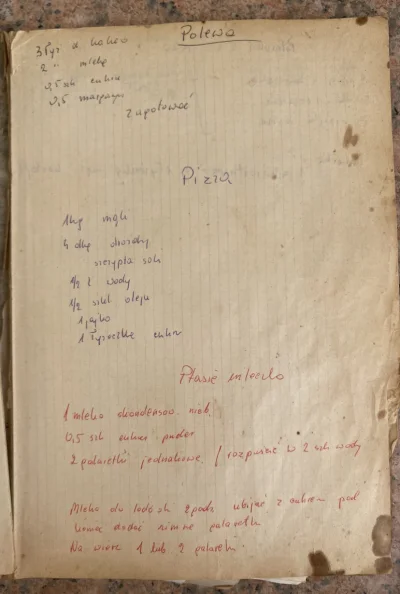 Polewa
3 łyż d kakao
2 " mleka
0,5 szk cukru
0,5 margaryn
Zagotować
Pizza
1kg mąki
5 dkg drożdży
szczypta soli
1/2 l. wody
1/2 szkl oleju
1 jajko
1 łyżeczka cukru
Ptasie mleczko
1 mleko skondensow. niesł.
0,5 szk cukier puder
2 galaretki jednakowe / rozpuścić w 2 szk wody
Mleko do lodówk 2 godz ubijać z cukrem pod
koniec dodać zimne galaretki
Na wierz 1 lub 2 galaretki